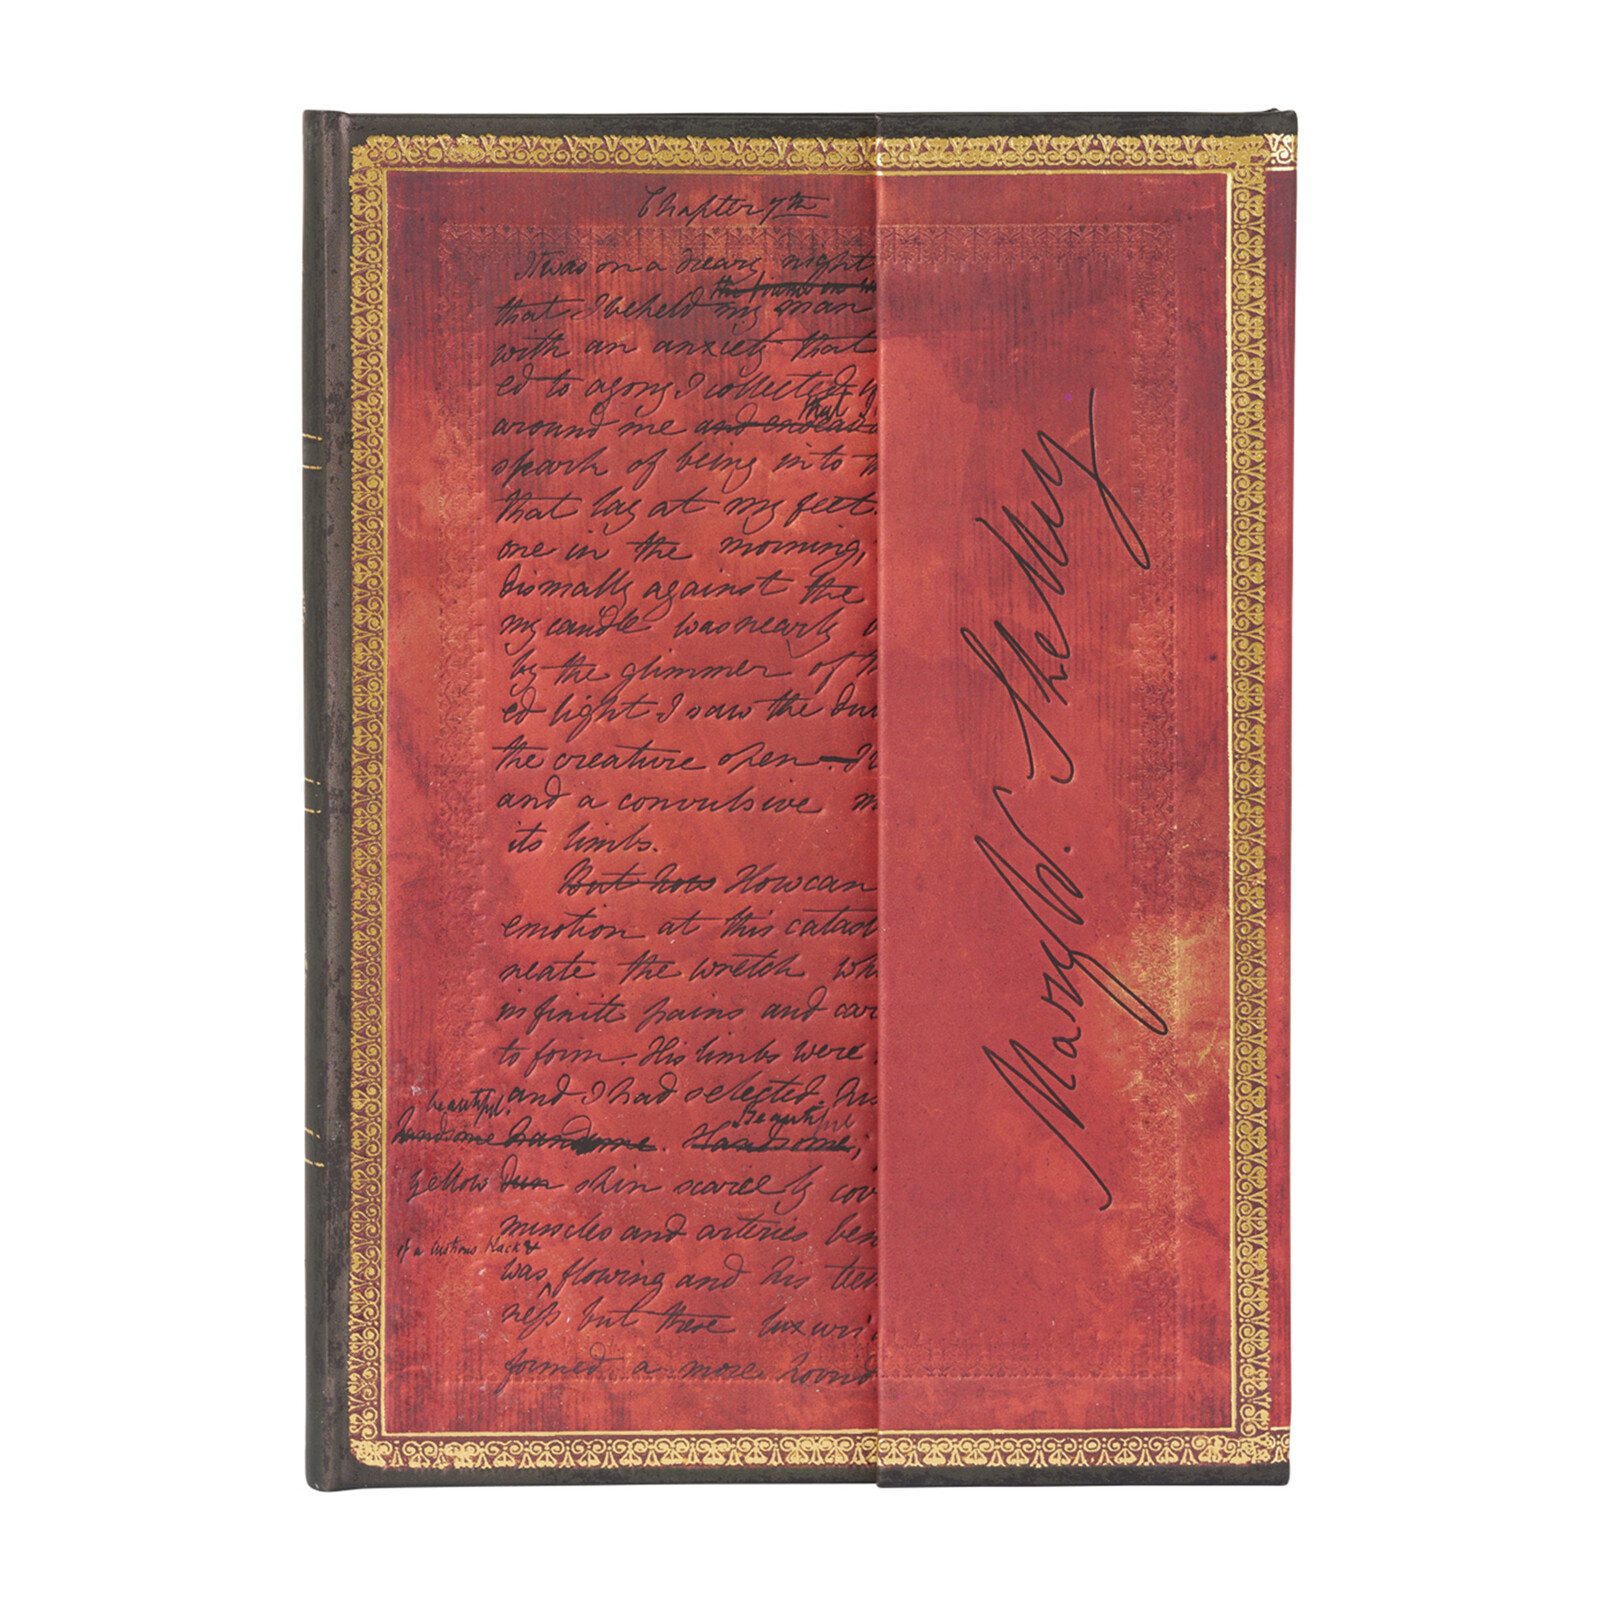 Chapter 7th
It was on a dreary night
the frame on wh
that I beheld my man
with an anxiety that
ed to agony I collected
that I
around me and endeavo
spark of being into th
that lay at my feet.
one in the morning,
dismally against the
my candle was nearly
by the glimmer of th
ed light I saw the dul
the creature open – It
and a convulsive m
its limbs.
But how How can
emotion at this catast
neate the wretch wh
infinite pains and car
to form. His limbs were
beautiful. and I had selected his
Beautiful
handsome handsome. Handsome;
yellow dun skin scarcely cov
muscles and arteries ben
of a lustrous black &
was flowing and his tee
ness but these luxuri
formed a more horrid
Mary W. Shelley